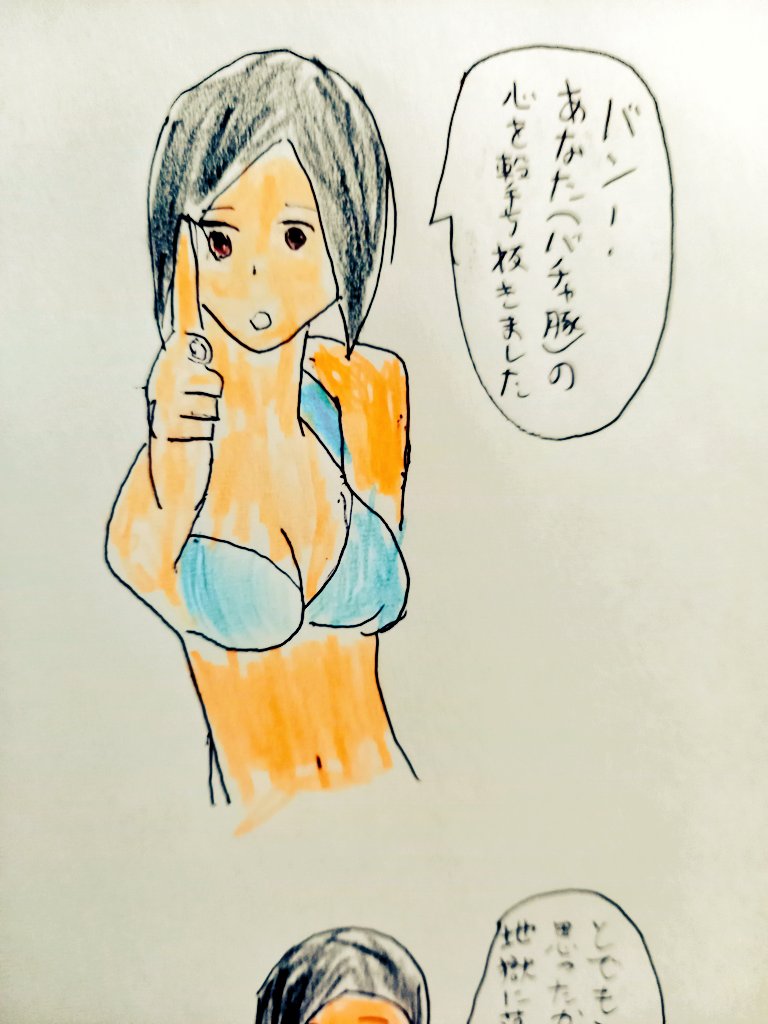 バンー.
あなた(バチャ豚)の
心を撃ち抜きました
とでも
思ったか
地獄に